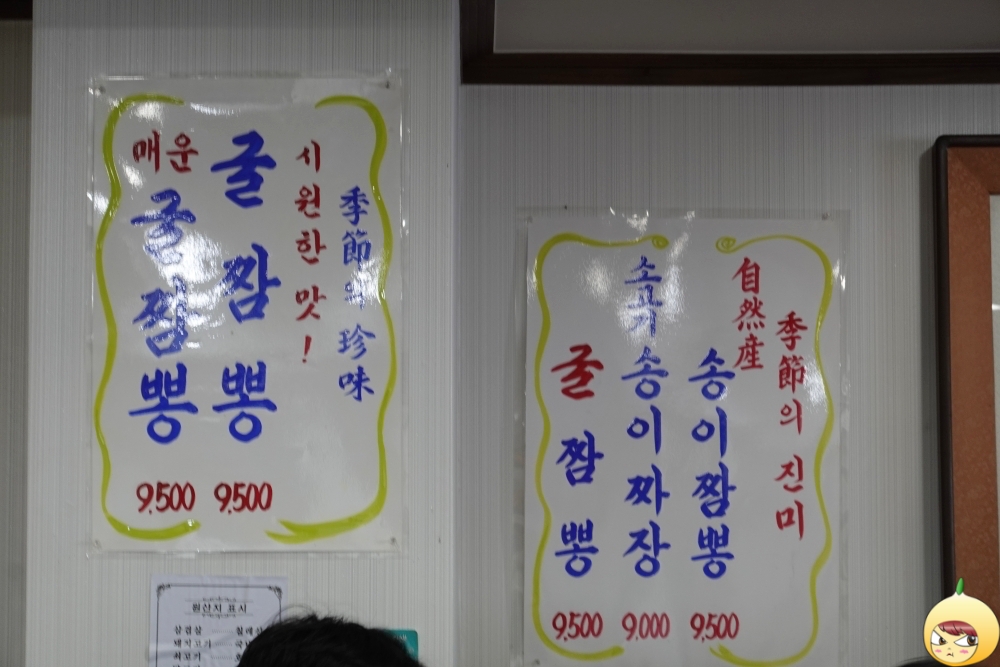 季節의 珍味
시원한 맛!
굴짬뽕 9,500
매운 굴짬뽕 9,500
季節의 진미
自然産
송이짬뽕 9,500
소고기 송이짜장 9,000
굴짬뽕 9,500
원산지 표시
삼겹살
돼지고기
쇠고기